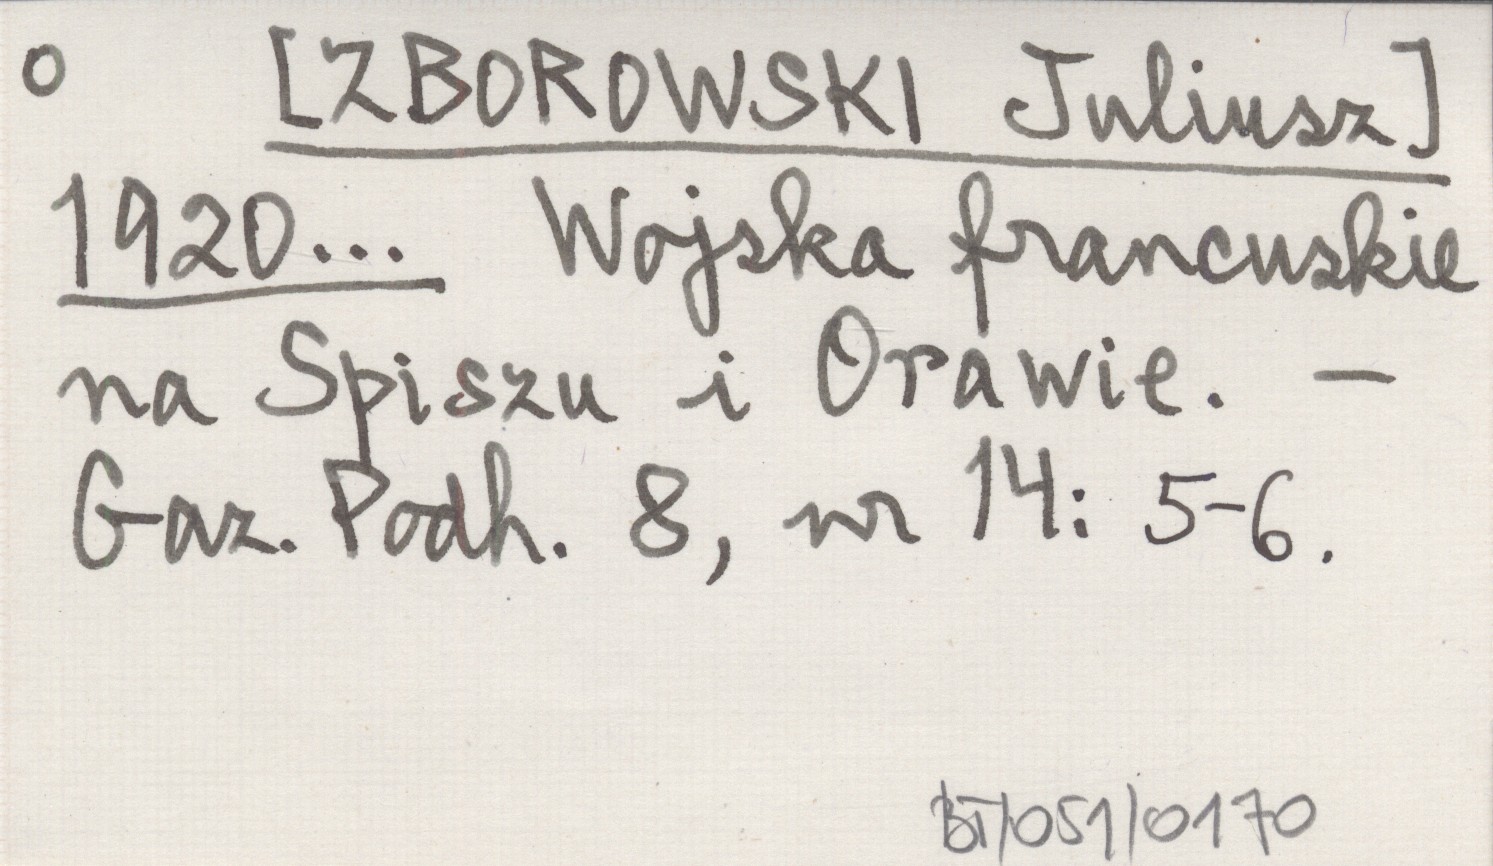 o [ZBOROWSKI Juliusz]
1920... Wojska francuskie
na Spiszu i Orawie. —
Gaz. Podh. 8, nr 14: 5-6.
BT/051/0170